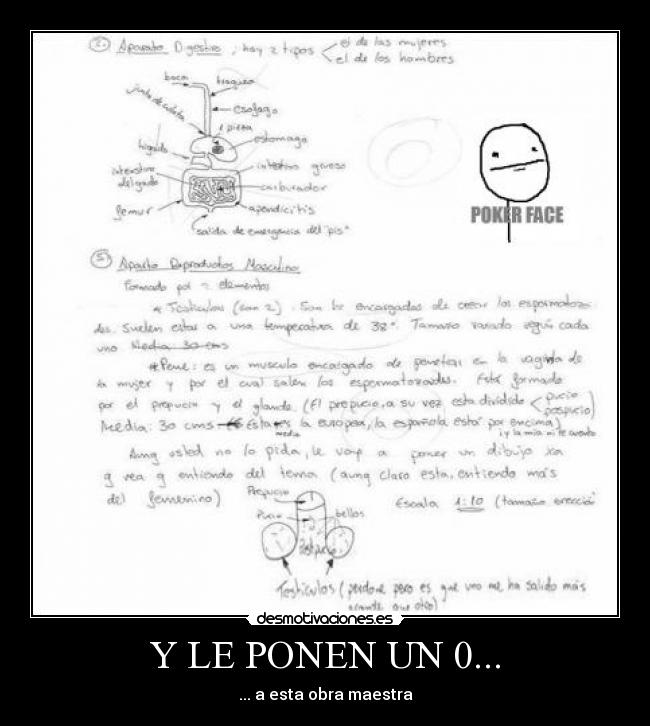 2. Aparato Digestivo ; hay 2 tipos
el de las mujeres
el de los hombres
boca
traquea
junta de culata
esofago
1 pieza
estomago
higado
intestino grueso
intenstino
delgado
carburador
femur
apendicitis
salida de emergencia del "pis"
POKER FACE
5. Aparato Reproductor Masculino
Formado por 2 elementos
* Testiculos (son 2). Son los encargados de crear los espermatozoi-
des. Suelen estar a una temperatura de 38°. Tamaño variado según cada
uno Media 30 cms
* Pene: es un musculo encargado de penetrar en la vagina de
la mujer y por el cual salen los espermatozoides. Está formado
por el prepucio y el glande. (El prepucio, a su vez esta dividido
pucio
pospucio)
Media: 30 cms Esta es la europea, la española está por encima)
media
¡y la mia ni te cuento
Aunq usted no lo pida, le voy a poner un dibujo xa
q vea q entiendo del tema (aunq claro esta, entiendo más
del femenino)
Prepucio
Escala 1:10 (tamaño erección
Pucio
bellos
Postpucio
Testiculos (perdone pero es que uno me ha salido más
grande que otro)
desmotivaciones.es
Y LE PONEN UN 0...
... a esta obra maestra